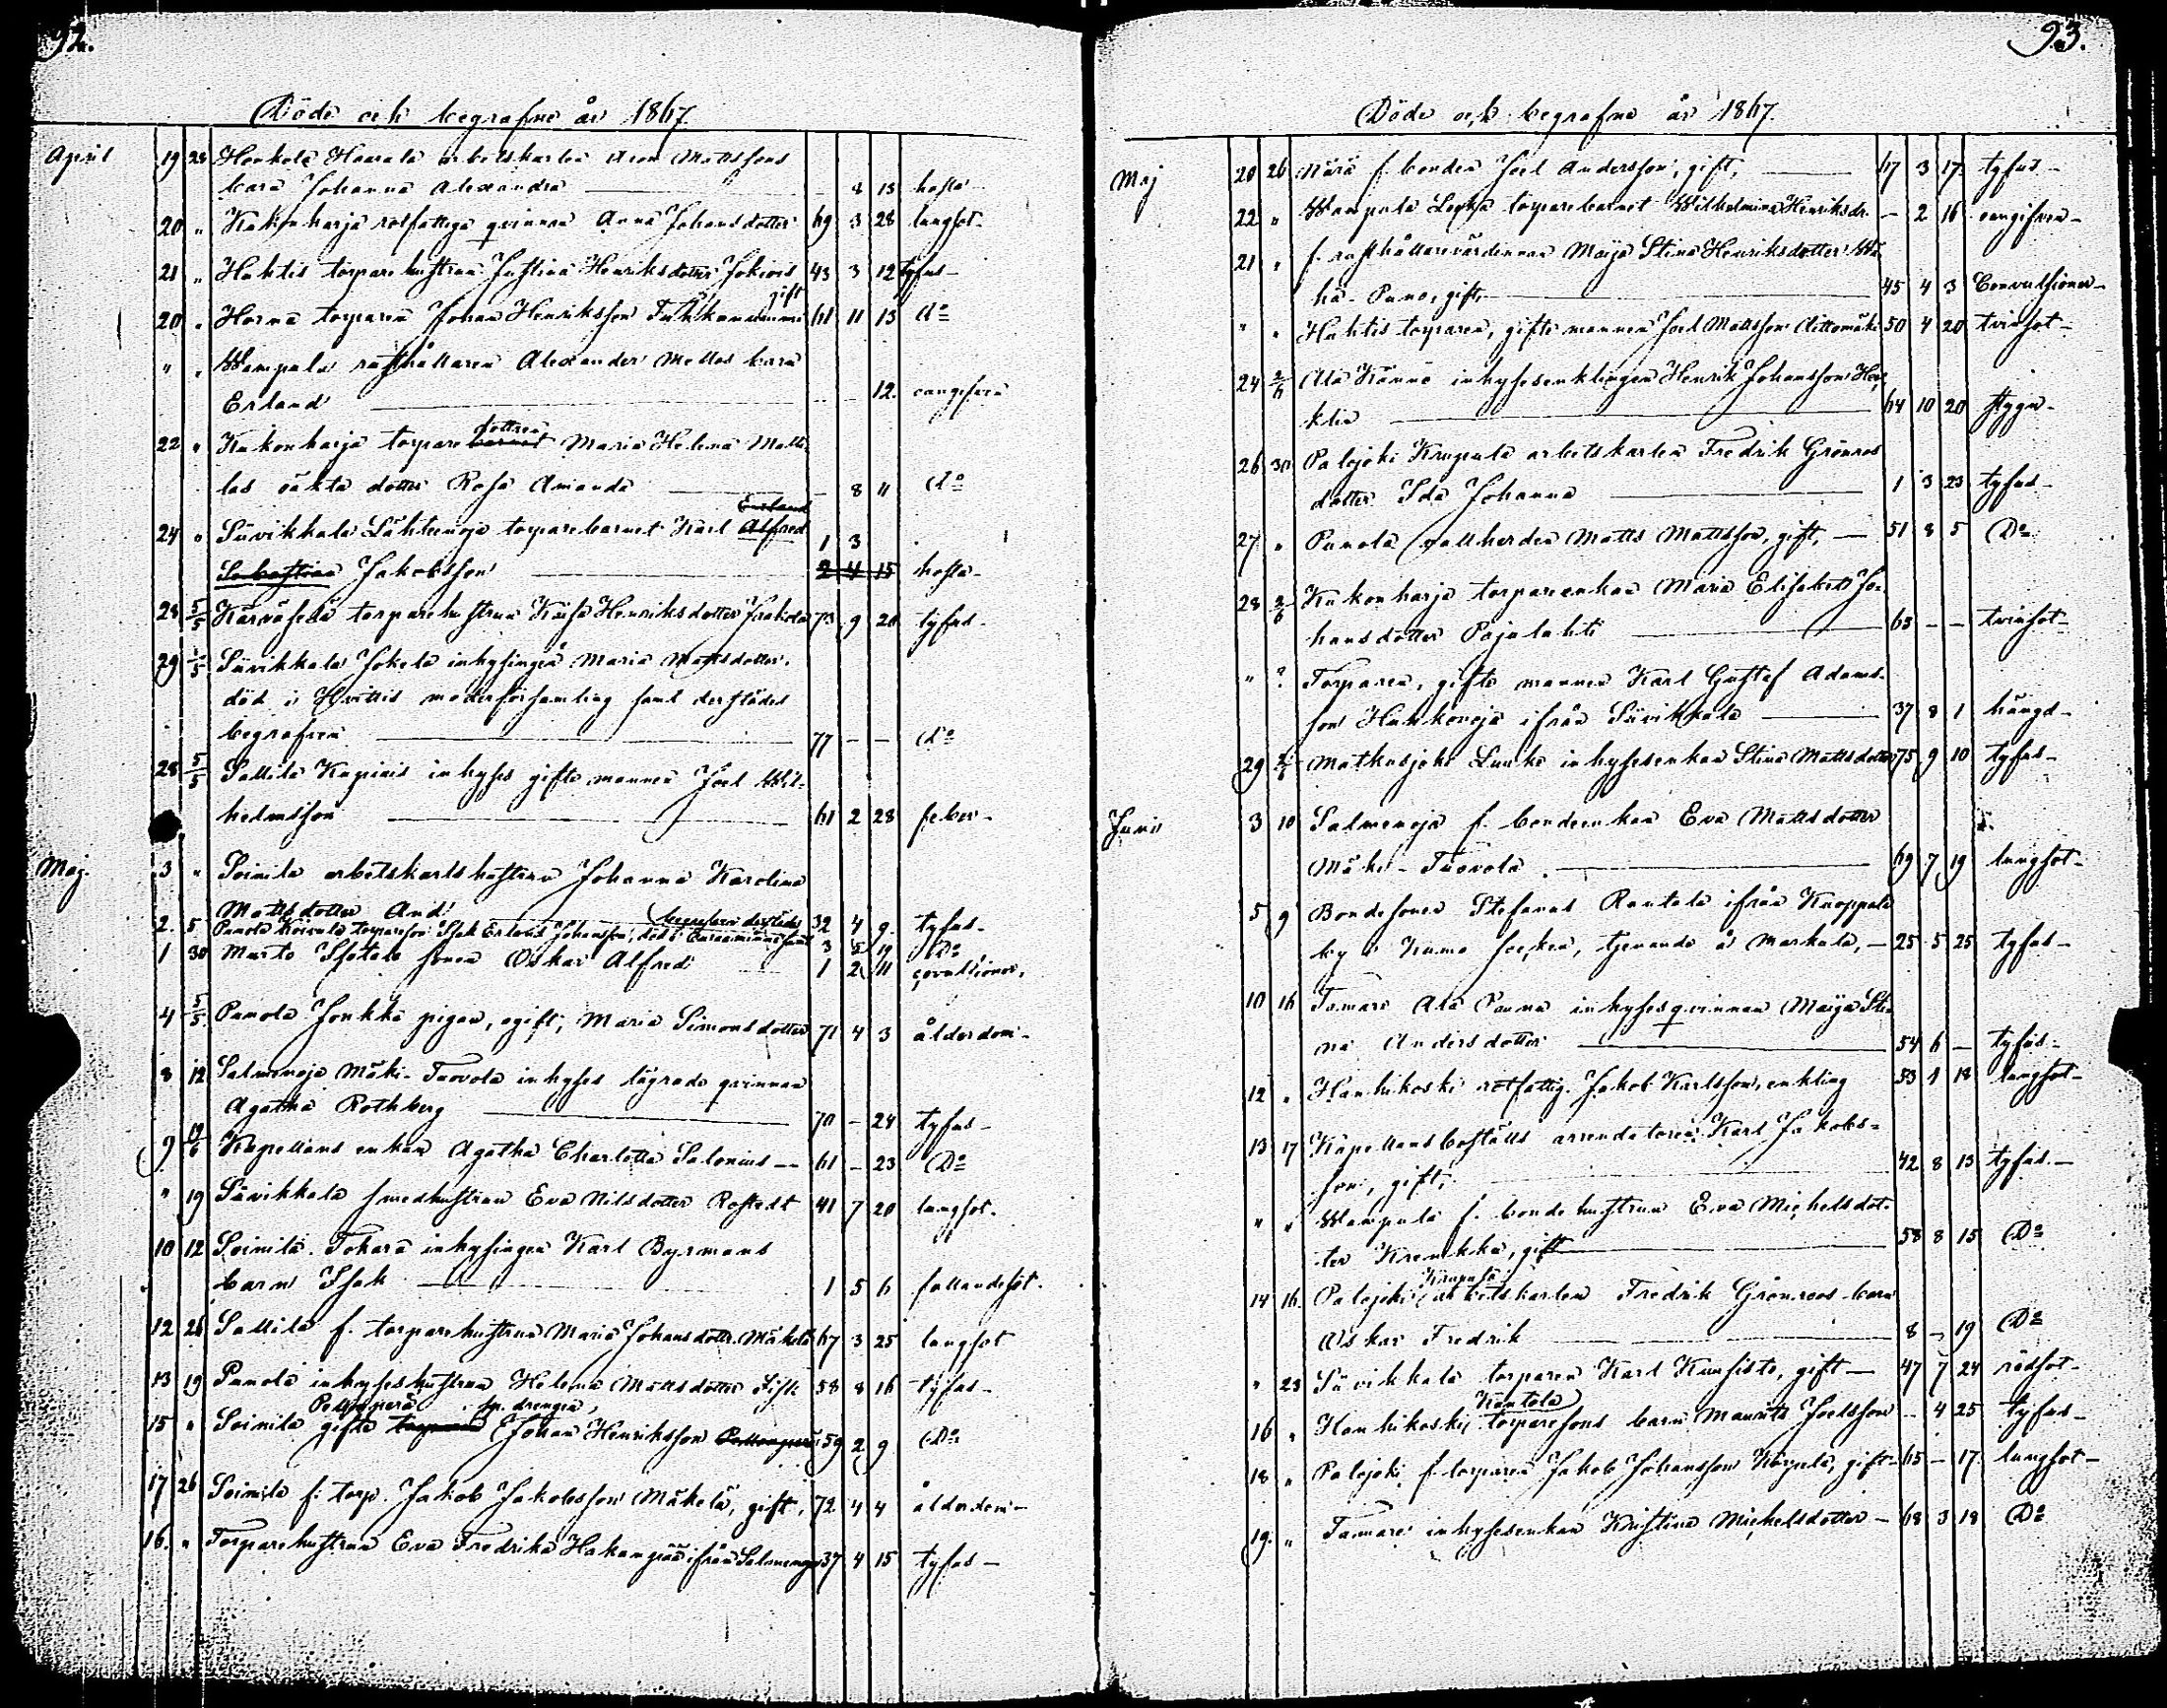 92.
Döde och begrafne år 1867.
April 19 28 Honkola Haarala arbetskarlen Mattssons
barn Johanna Alexandra — 8 13 hosta
20 " Kukonharja rotfattiga qvinnan Anna Johansdotter 69 3 28 lungsot
21 " Huhtis torpare hustrun Justina Henriksdotter Jokiois 43 3 12 tyfus
gift
20 " Horna torparen Johan Henriksson 61 11 13 do
" " Wampula rusthållaren Alexander Mellos barn
Erland — 12. oangifven
dottren
22 " Kukonharja torpare barnet Maria Helena Matti-
las oäkta dotter Rosa Amanda — 8 11 do
24 " Sävikkala Lähteenoja torparebarnet Karl Alfred 1 3
Sebastian Jakobsson — 2 4 15 hosta
28 5/5 torpare hustrun Kaisa Henriksdotter 73 9 20 tyfus
29 Sävikkala Jokela inhysingen Maria Mattsdotter,
död i Hvittis moderförsamling samt derstädes
begrafven — 77 — — do
28 5/5 Sallila inhyses gifte mannen Joel Wil-
helmsson — 61 2 28 feber
Maj. 3 " Soinila arbetskarls hustrun Johanna Karolina
Mattsdotter And: 32 4 9. tyfus
begrafven derstädes
2. 5 Punola torpareson Isak Erland Johansson, död i Euraåminne samt 3 5 19 Do
1 30 Murto sonen Oskar Alfred 1 2 11 convulsioner.
4 5/5 Punola Jonkka pigan, ogift, Maria Simonsdotter 71 4 3 ålderdom
8 12 Salmenoja Mäki-Tuovola inhyses lägrade qvinnan
Agatha Rothberg — 70 — 24 tyfus
9 Kapellans enkan Agatha Charlotta Salonius — 61 — 23 Do
" 19 Sävikkala smedhustrun Eva Nilsdotter Rostedt 41 7 20 lungsot.
10 12 Soinila Tohara inhysingen Karl Byrmans
barn Isak — 1 5 6 fallandesot.
12 26 Sallila f. torparehustrun Maria Johansdotter Mäkelä 67 3 25 lungsot
13 19 Punola inhyseshustrun Helena Mattsdotter 58 8 16 tyfus
15 " Soinila gifte torparen drengen, Johan Henriksson 59 2 9 Do
17 26 Soinila f. torp. Jakob Jakobsson Mäkelä, gift, 72 4 4 ålderdom
16. " Torparehustrun Eva Fredrika Hakanpää ifrån Salmenoja 37 4 15 tyfus
93.
Döde och begrafne år 1867.
Maj 20 26 f. bonden Joel Andersson, gift, — 67 3 17. tyfus
22 " Wampula torparebarnet Wilhelmina Henriksdr. — 2 16 oangifven
21 " f. rusthållarevärdinnan Maija Stina Henriksdotter
Puno, gift, — 45 4 3 Convulsioner
" " Huhtis torparen, gifte mannen Joel Mattsson 50 4 20 tvinsot
24 2/6 Ala Kännö inhysesenklingen Henrik Johansson
— 64 10 20 stygn
26 30 Palojoki Krupula arbetskarlen Fredrik Grönroos
dotter Ida Johanna — 1 3 23 tyfus
27 " Punola vallherden Matts Mattsson, gift, — 51 8 5 Do
28 2/6 Kukonharja torpareenkan Maria Elisabeth Jo-
hansdotter Pajulahti — 63 — — tvinsot
" ? Torparen, gifte mannen Karl Gustaf Adams-
son ifrån Sävikkala — 37 8 1 hängd
29 Matkusjoki Lunki inhysesenkan Stina Mattsdotter 75 9 10 tyfus
Junii 3 10 Salmenoja f. bondeenkan Eva Mattsdotter
Mäki-Tuovola. — 69 7 19 lungsot
5 9 Bondesonen Stefanus Rantala ifrån
by i Kumo socken, tjenande å Markula, — 25 5 25 tyfus
10 16 Tamare Ala Pauna inhysesqvinnan Maija Sti-
na Andersdotter — 54 6 — tyfus
12 " Hanhikoski rotfattig. Jakob Karlsson, enkling 53 1 18 lungsot
13 17 Kapellansboställs arrendatoren Karl Jakobs-
son, gift, — 42 8 13 tyfus
" " Wampula f. bondehustrun Eva Michelsdot-
ter Krenkka, gift — 58 8 15 Do
Krupula
14 16. Palojoki arbetskarlen Fredrik Grönroos barn
Oskar Fredrik — 8 — 19 Do
" 23 Sävikkala torparen Karl Kuusisto, gift — 47 7 24 rödsot
Käntola
16 " Hanhikoski torparesons barn Maurits Joelsson — 4 25 tyfus
18 " Palojoki f. torparen Jakob Johansson, gift 65 — 17. lungsot
19. " Tamare inhysesenkan Kristina Michelsdotter — 68 3 18 Do